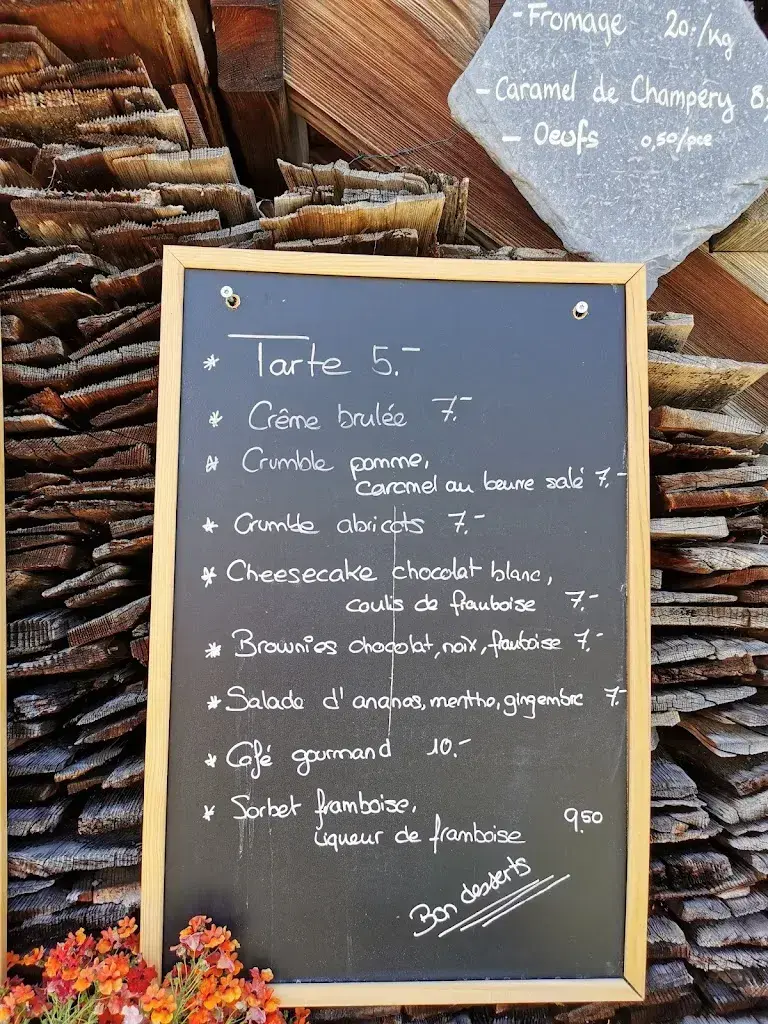 -Fromage 20.-/kg
-Caramel de Champéry 8,
- Oeufs 0,50/pce
* Tarte 5.-
* Crême brulée 7.-
* Crumble pomme,
caramel au beurre salé 7.-
* Crumble abricots 7.-
* Cheesecake chocolat blanc,
coulis de framboise 7.-
* Brownies chocolat, noix, framboise 7.-
* Salade d'ananas, menthe, gingembre 7.-
* Café gourmand 10.-
* Sorbet framboise,
liqueur de framboise 9.50
Bon desserts